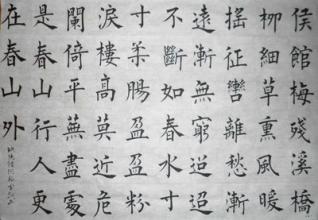 侯館梅殘溪橋
柳細草熏風暖
搖征轡離愁漸
遠漸無窮迢迢
不斷如春水寸
寸柔腸盈盈粉
淚樓高莫近危
闌倚平蕪盡處
是春山行人更
在春山外